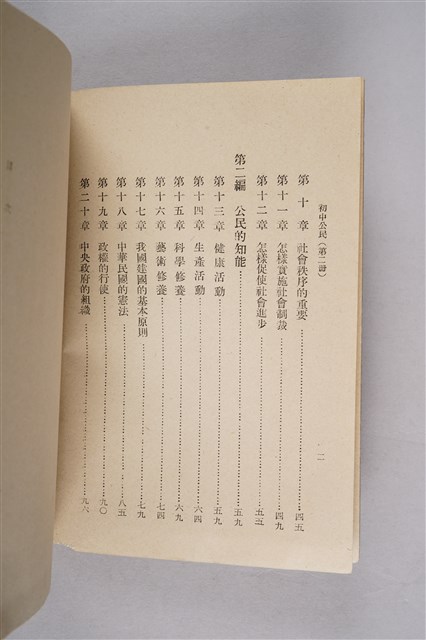 初中公民（第二冊）
二
第十章 社會秩序的重要……四五
第十一章 怎樣實施社會制裁……四九
第十二章 怎樣促使社會進步……五五
第二編 公民的知能……五九
第十三章 健康活動……五九
第十四章 生產活動……六四
第十五章 科學修養……六九
第十六章 藝術修養……七四
第十七章 我國建國的基本原則……七九
第十八章 中華民國的憲法……八五
第十九章 政權的行使……九〇
第二十章 中央政府的組織……九六